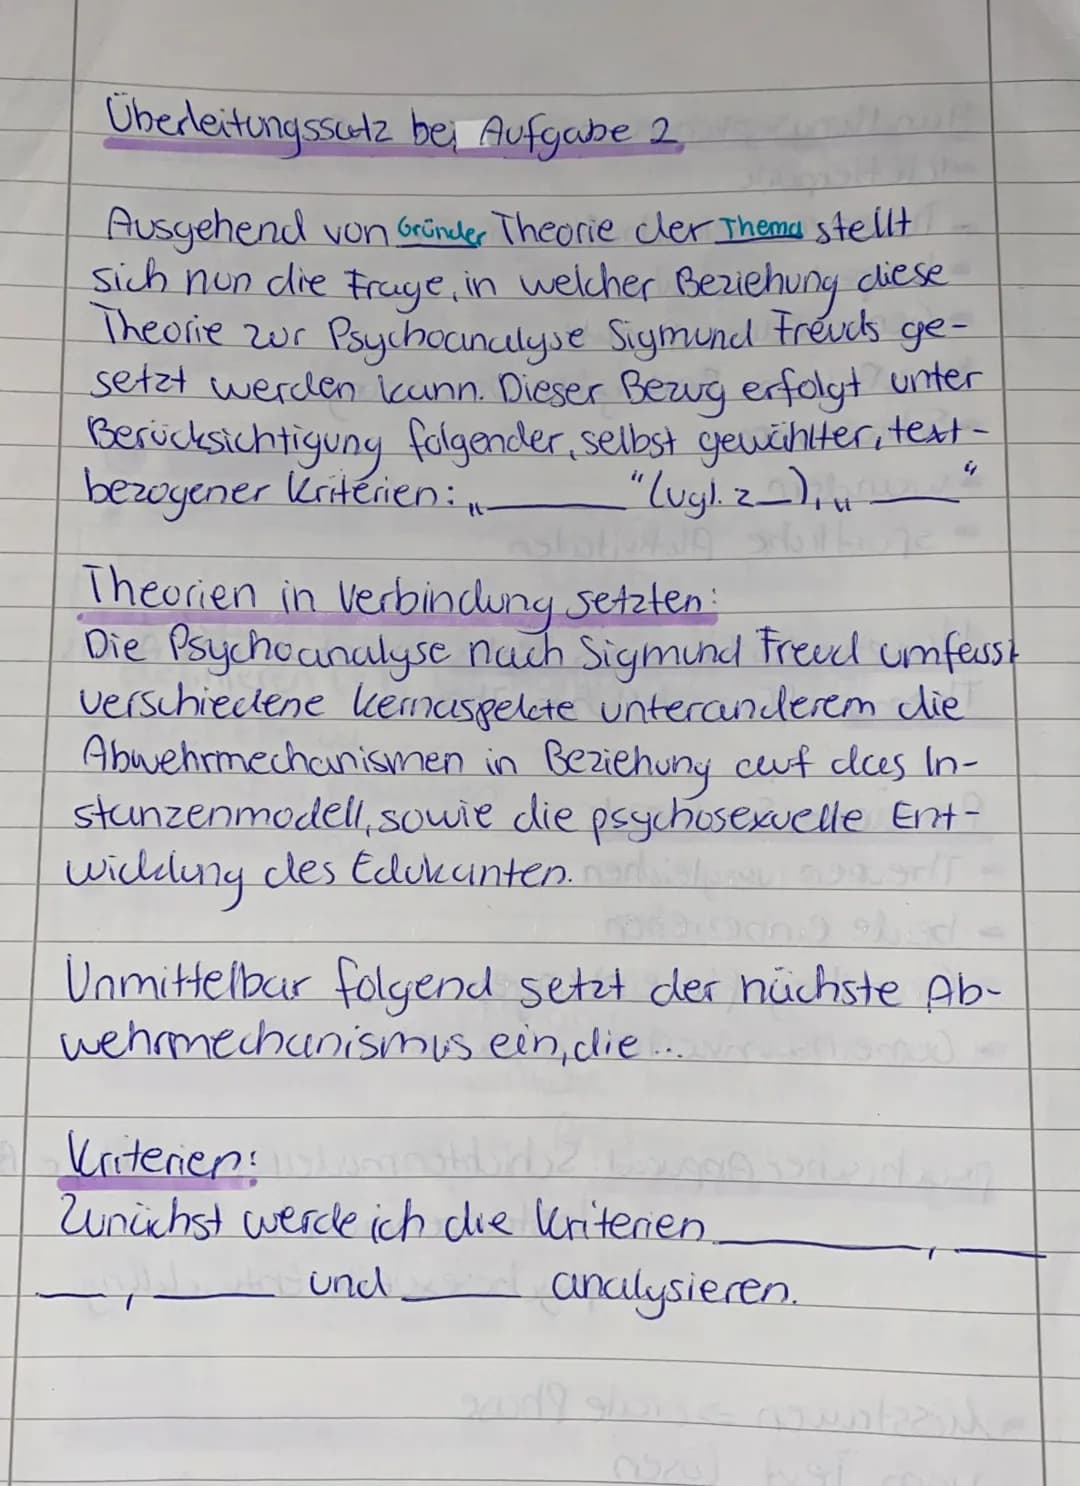 Überleitungssatz bei Aufgabe 2
Ausgehend von Gründer Theorie der Thema stellt
sich nun die Frage, in welcher Beziehung diese
Theorie zur Psychoanalyse Sigmund Freuds ge-
setzt werden kann. Dieser Bezug erfolgt unter
Berücksichtigung folgender, selbst gewählter, text-
bezogener Kriterien: „______“ (vgl. z_), „______“
Theorien in Verbindung setzten:
Die Psychoanalyse nach Sigmund Freud umfasst
verschiedene Kernaspekte unteranderem die
Abwehrmechanismen in Beziehung auf das In-
stanzenmodell, sowie die psychosexuelle Ent-
wicklung des Edukanten.
Unmittelbar folgend setzt der nächste Ab-
wehrmechanismus ein, die ...
Kriterien:
Zunächst werde ich die Kriterien ______, ___
___, ______ und ______ analysieren.